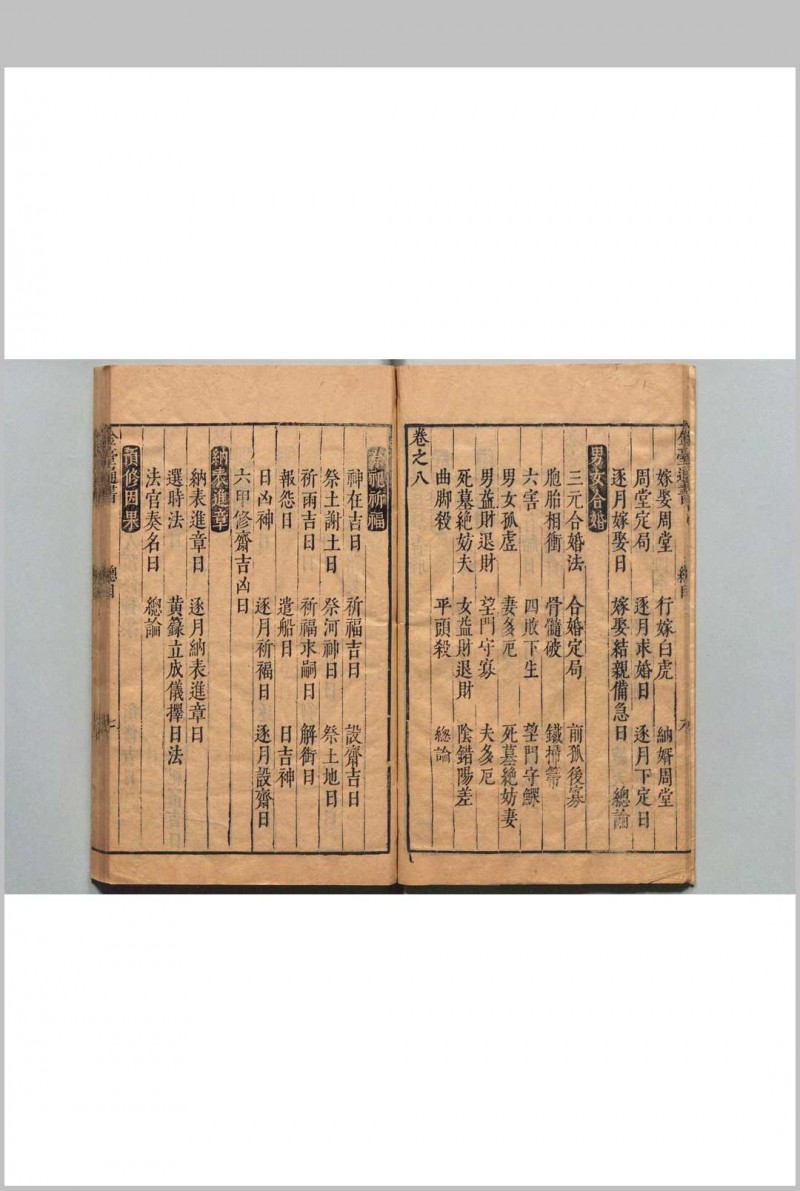 嫁娶周堂　行嫁白虎　納婿周堂
周堂定局　逐月求婚日　逐月下定日
逐月嫁娶日　嫁娶結親備急日　總論
男女合婚
三元合婚法　合婚定局　前孤後寡
胞胎相衝　骨髓破　鐵掃箒
六害　四敗下生　望門守鰥
男女孤虛　妻多厄　死墓絕妨妻
男益財退財　望門守寡　夫多厄
死墓絕妨夫　女益財退財　陰錯陽差
曲脚殺　平頭殺　總論
卷之八
祭祀祈福
神在吉日　祈福吉日　設齋吉日
祭土謝土日　祭河神日　祭土地日
祈雨吉日　祈福求嗣日　解衘日
報怨日　遣船日　日吉神
日凶神　逐月祈福日　逐月設齋日
六甲修齋吉凶日
納表進章
納表進章日　逐月納表進章日
選時法　黃籙立成儀擇日法
法官奏名日　總論
預修因果
通書　總目　七